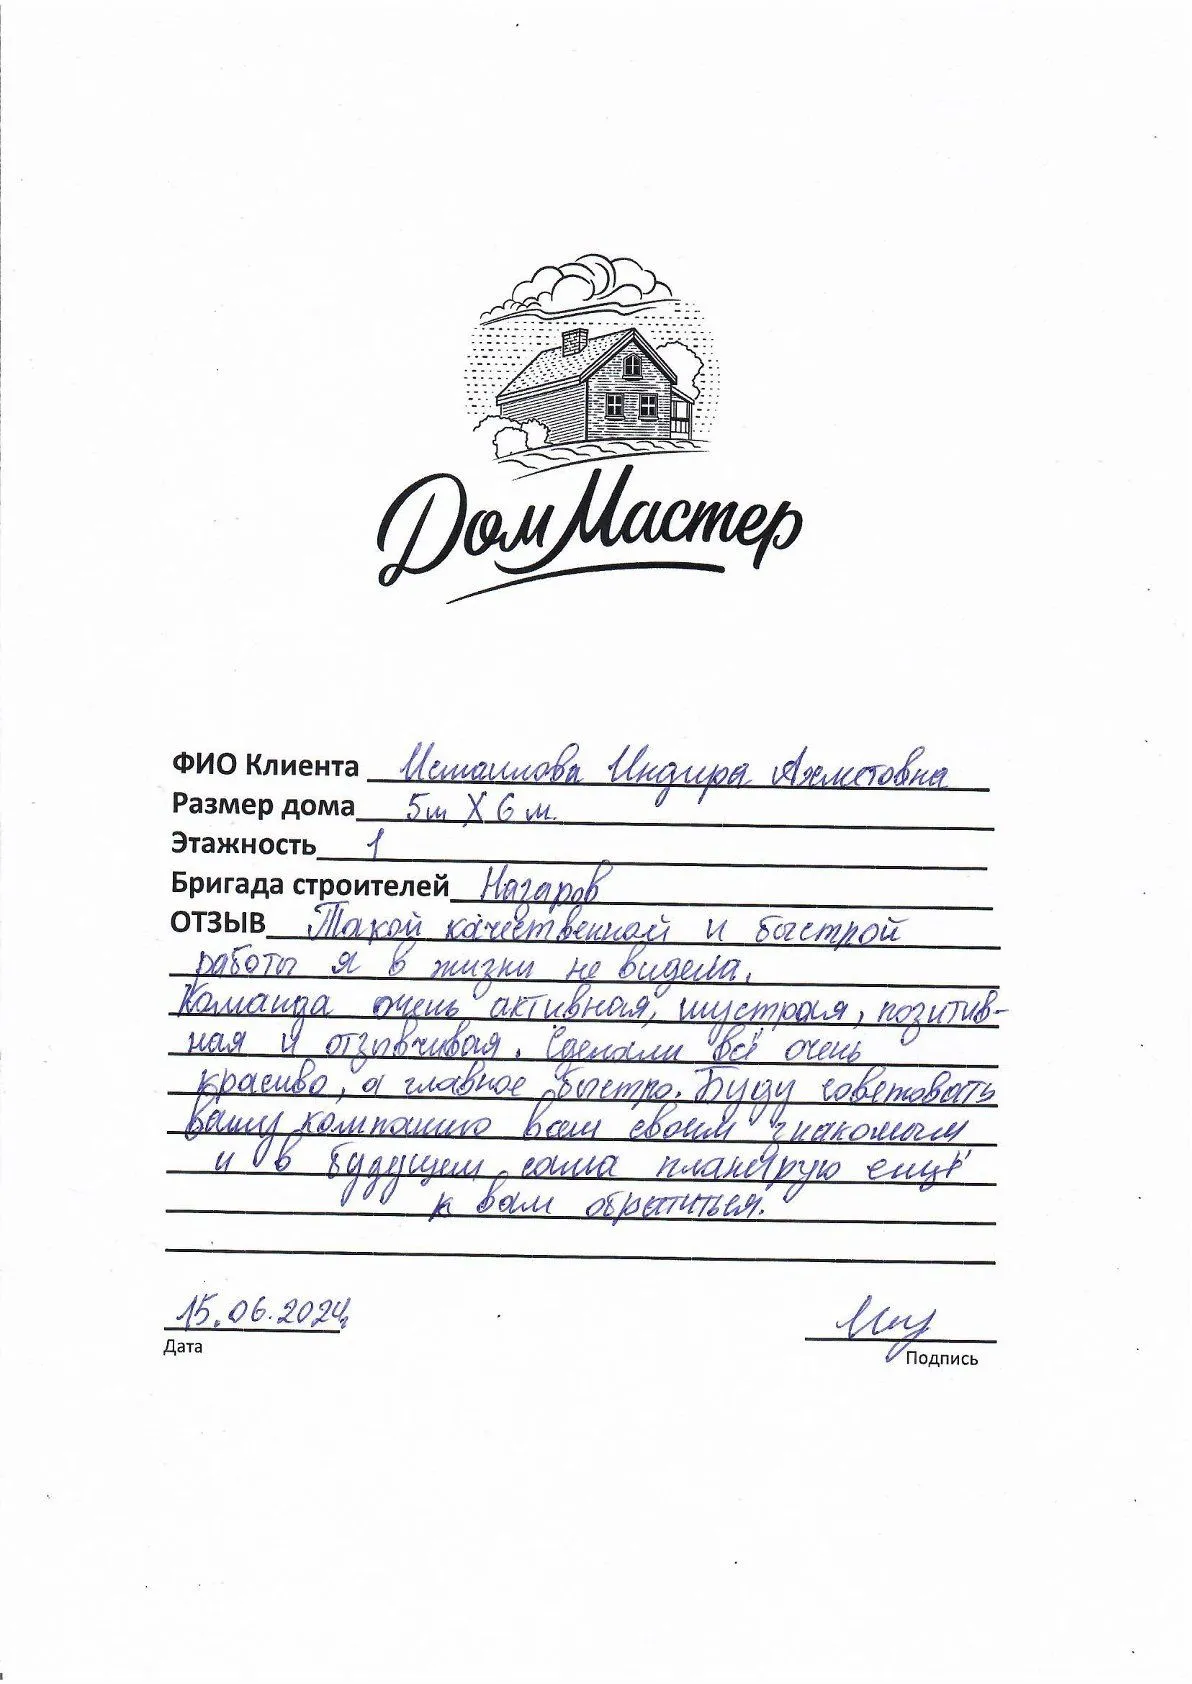 Дом Мастер
ФИО Клиента Исмаилова Индира Ахметовна
Размер дома 5м X 6 м.
Этажность 1
Бригада строителей Назаров
ОТЗЫВ Такой качественной и быстрой
работы я в жизни не видела.
Команда очень активная, шустрая, позитив-
ная и отзывчивая. Сделали всё очень
красиво, а главное быстро. Буду советовать
вашу компанию всем своим знакомым
и в будущем сама планирую ещё
к вам обратиться.
15.06.2024г.
Дата
Подпись